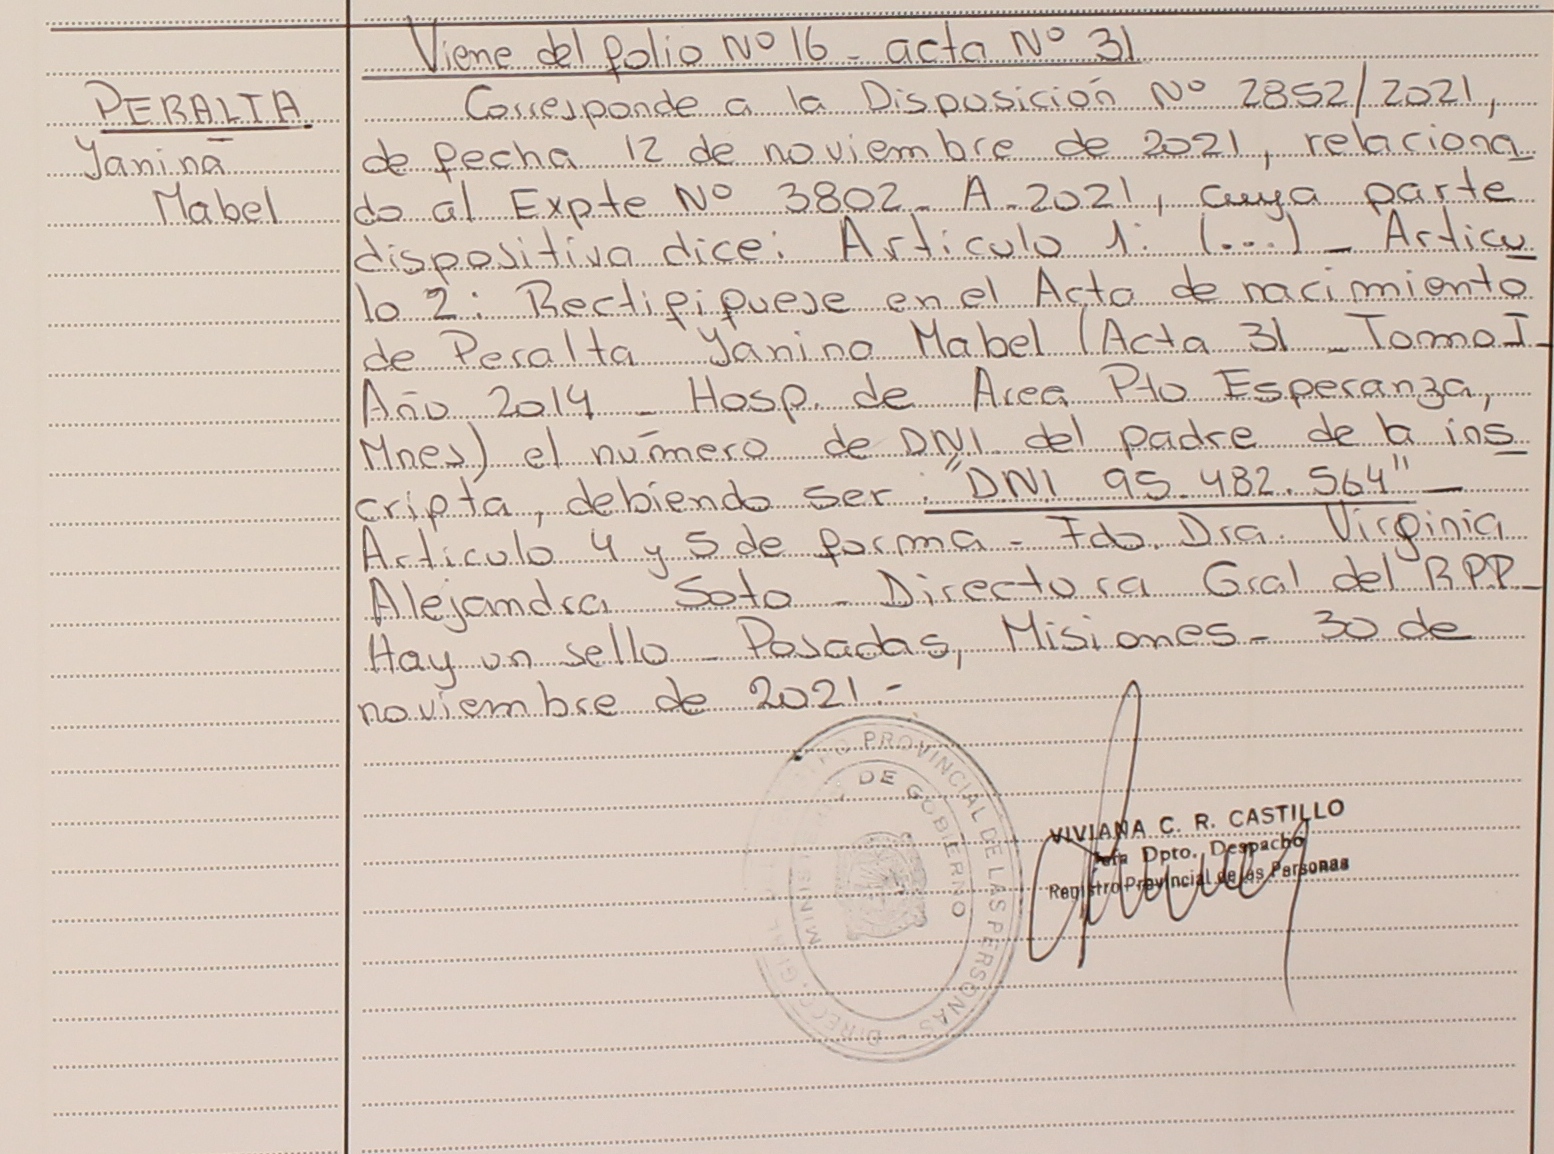 Viene del folio Nº 16 - acta Nº 31
PERALTA
Yanina
Mabel
Corresponde a la Disposición Nº 2852/2021,
de fecha 12 de noviembre de 2021, relaciona
do al Expte Nº 3802 - A - 2021, cuya parte
dispositiva dice: Artículo 1: (...) - Artícu
lo 2: Rectifíquese en el Acta de nacimiento
de Peralta Yanina Mabel (Acta 31 - Tomo I -
Año 2014 - Hosp. de Area Pto Esperanza,
Mnes) el número de DNI del padre de la ins
cripta, debiendo ser: "DNI 95.482.564" -
Artículo 4 y 5 de forma - Fdo. Dra. Virginia
Alejandra Soto - Directora Gral del RPP -
Hay un sello - Posadas, Misiones - 30 de
noviembre de 2021.-
DIRECC. GRAL. DEL REGISTRO PROVINCIAL DE LAS PERSONAS -
MINISTERIO DE GOBIERNO
VIVIANA C. R. CASTILLO
Jefa Dpto. Despacho
Registro Provincial de las Personas